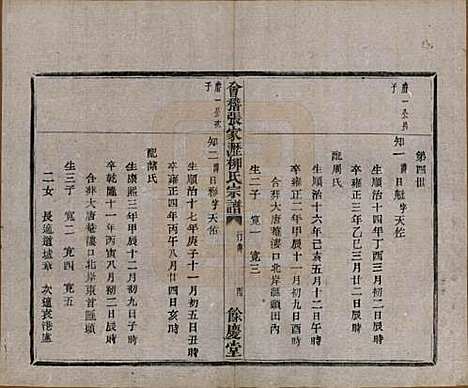 第四世
唐一公長子
知一 諱日 字天佐
生順治十四年丁酉三月初二日辰時
卒雍正三年乙巳三月廿二日辰時
配周氏
生順治十六年己亥五月十二日午時
卒雍正二年甲辰十一月初九日酉時
合葬大唐菴漊口北岸滙頭田內
生二子 寬一 寬三
會稽張家瀝柳氏宗譜
行傳
四
餘慶堂
唐一公次子
知二 諱日 字天佑
生順治十七年庚子十一月初五日丑時
卒雍正四年丙午八月廿四日亥時
配 氏
生康熙三年甲辰十二月初九日子時
卒乾隆十一年丙寅八月初二日辰時
合葬大唐菴漊口北岸東首滙頭
生三子 寬二 寬四 寬五
二女 長適道墟章 次適袁港盧